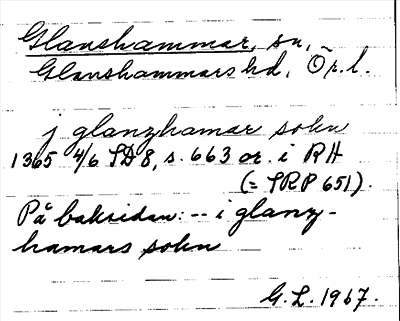 Glanshammar, sn,
Glanshammars hd, Ör.l.
j glanzhamar sokn
1365 4/6 SD 8, s. 663 or. i RH
(= SRP 651).
På baksidan: -- i glanz-
hamars sokn
G.L. 1967.